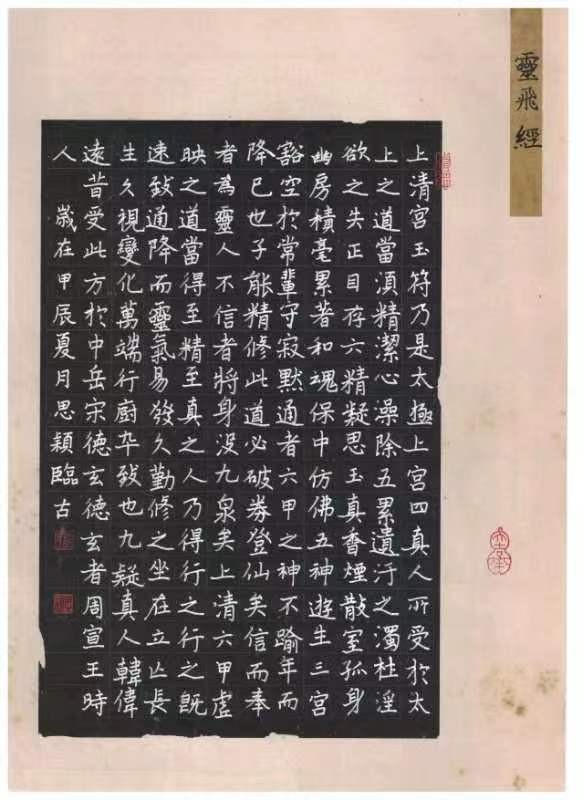 靈飛經
上清宮玉符乃是太極上宮四真人所受於太
上之道當湏精潔心澡除五累遺汙之濁杜淫
欲之失正目存六精凝思玉真香煙散室孤身
幽房積毫累著和魂保中仿佛五神遊生三宮
豁空於常輩守寂默通者六甲之神不踰年而
降已也子能精修此道必破券登仙矣信而奉
者為靈人不信者將身沒九泉矣上清六甲虛
映之道當得至精至真之人乃得行之行之既
速致通降而靈氣易發久勤修之坐在立亡長
生久視變化萬端行廚卒致也九疑真人韓偉
遠昔受此方於中岳宋德玄德玄者周宣王時
人 歲在甲辰夏月思穎臨古